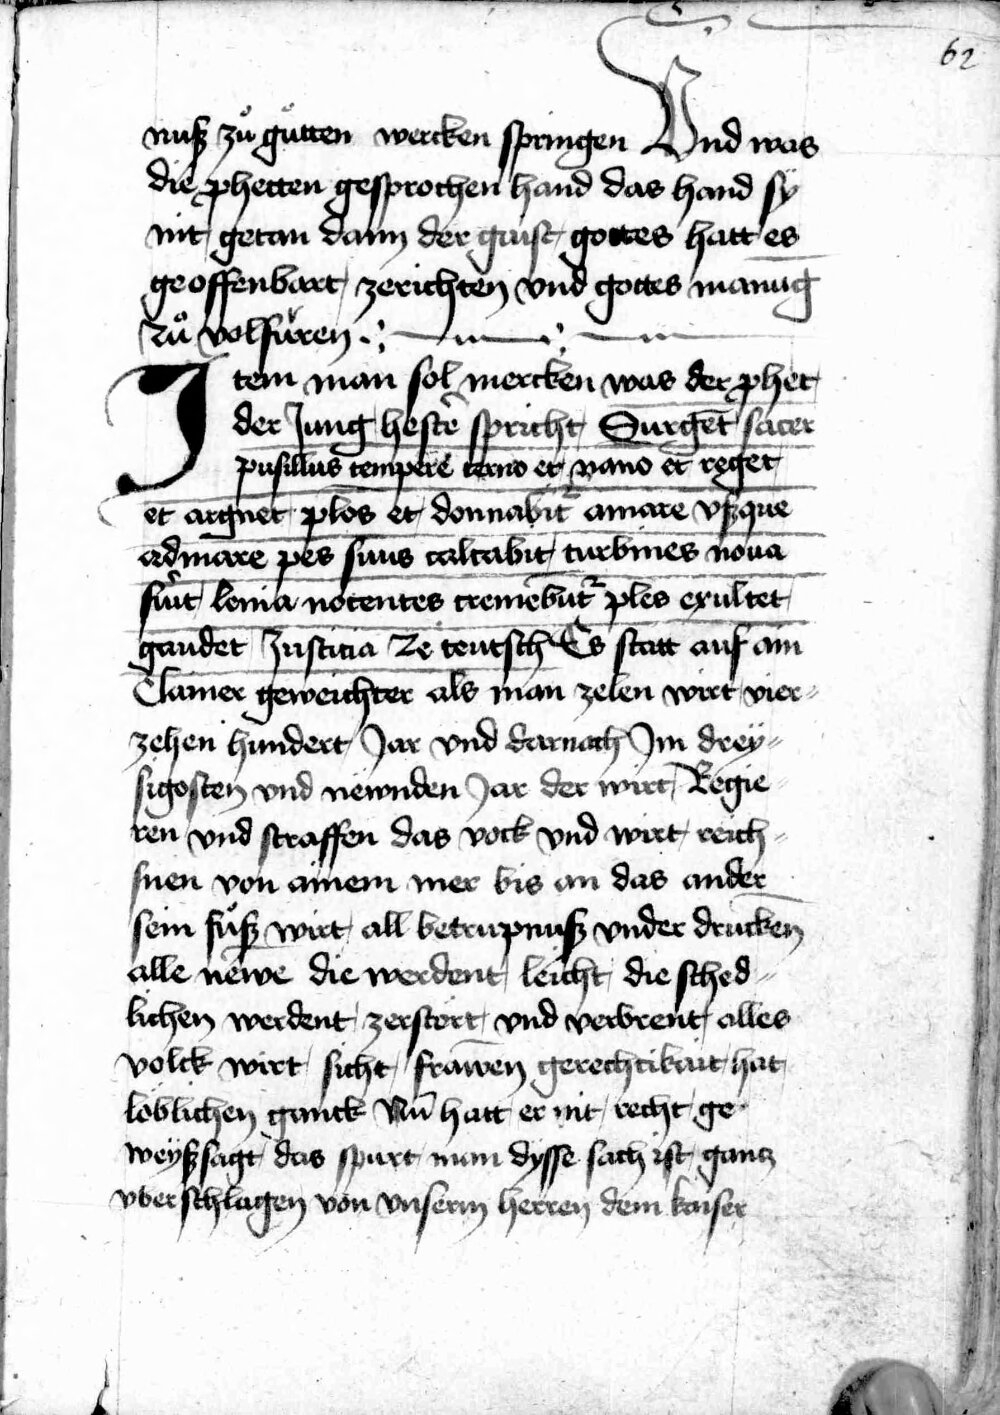 62
nuß zuͦ guͦtten wercken springen Vnd was
die phetten gesprochen hand das hand sÿ
nit getan dann der gaist gottes hatt es
geoffenbart zerichten vnd gottes manug
zuͦ volfuͤren
Item man sol mercken was der phet
der Jung hestẽr spricht Surgẽt sacer
pusillus tempere terno et nano et reget
et arguet plos et donnabitr amare vßque
ad mare pes suus calcabit turbines noua
fiut lenia nocentes cremẽbutr ples exultet
gaudet Justicia Ze teutsch Es statt auf ain
Clainer geweichter als man zelen wirt vier-
zehen hundert Jar vnd darnach Jm drey-
sigosten vnd newnden Jar der wirt Regie-
ren vnd straffen das vock vnd wirt reich-
snen von ainem mer bis an das ander
sein fuͦß wirt all betrupnuß vnder drucken
alle newe die werdent leicht die sched-
lichen werdent zerstört vnd verbrent alles
volck wirt sicht frawen gerechtikait hat
löblichen ganck Nũ hatt er nit recht ge
weyßsagt das spurt man dysse sach ist gantz
vberschlagen von vnserm herren dem kaiser